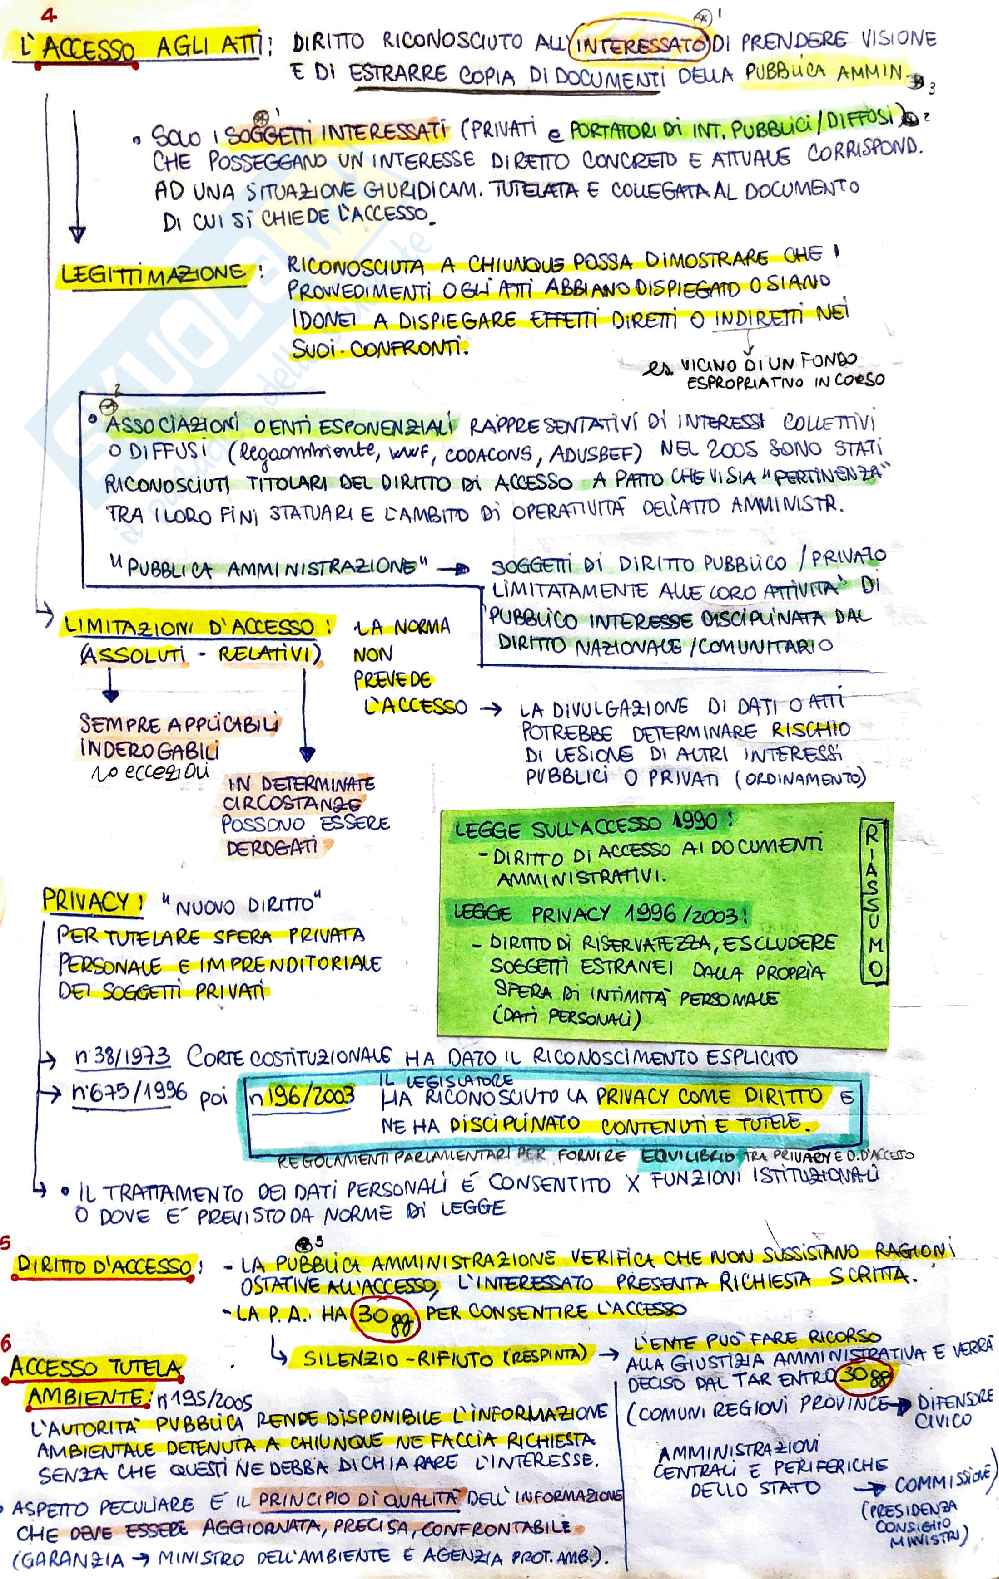 4
L'ACCESSO AGLI ATTI: DIRITTO RICONOSCIUTO ALL'INTERESSATO DI PRENDERE VISIONE
E DI ESTRARRE COPIA DI DOCUMENTI DELLA PUBBLICA AMMIN. 3
• SOLO I SOGGETTI INTERESSATI (PRIVATI e PORTATORI DI INT. PUBBLICI/DIFFUSI) 2
CHE POSSEGGANO UN INTERESSE DIRETTO CONCRETO E ATTUALE CORRISPOND.
AD UNA SITUAZIONE GIURIDICAM. TUTELATA E COLLEGATA AL DOCUMENTO
DI CUI SI CHIEDE L'ACCESSO.
LEGITTIMAZIONE: RICONOSCIUTA A CHIUNQUE POSSA DIMOSTRARE CHE I
PROVVEDIMENTI O GLI ATTI ABBIANO DISPIEGATO O SIANO
IDONEI A DISPIEGARE EFFETTI DIRETTI O INDIRETTI NEI
SUOI CONFRONTI.
es VICINO DI UN FONDO
ESPROPRIATIVO IN CORSO
• ASSOCIAZIONI O ENTI ESPONENZIALI RAPPRESENTATIVI DI INTERESSI COLLETTIVI
O DIFFUSI (Legaambiente, WWF, CODACONS, ADUSBEF) NEL 2005 SONO STATI
RICONOSCIUTI TITOLARI DEL DIRITTO DI ACCESSO A PATTO CHE VI SIA "PERTINENZA"
TRA I LORO FINI STATUARI E L'AMBITO DI OPERATIVITÀ DELL'ATTO AMMINISTR.
"PUBBLICA AMMINISTRAZIONE" → SOGGETTI DI DIRITTO PUBBLICO / PRIVATO
LIMITATAMENTE ALLE LORO ATTIVITÀ DI
PUBBLICO INTERESSE DISCIPLINATA DAL
DIRITTO NAZIONALE / COMUNITARIO
LIMITAZIONI D'ACCESSO: LA NORMA
(ASSOLUTI - RELATIVI) NON
PREVEDE
L'ACCESSO → LA DIVULGAZIONE DI DATI O ATTI
POTREBBE DETERMINARE RISCHIO
DI LESIONE DI ALTRI INTERESSI
PUBBLICI O PRIVATI (ORDINAMENTO)
SEMPRE APPLICABILI
INDEROGABILI
no eccezioni
IN DETERMINATE
CIRCOSTANZE
POSSONO ESSERE
DEROGATI
RIASSUMO
LEGGE SULL'ACCESSO 1990:
- DIRITTO DI ACCESSO AI DOCUMENTI
AMMINISTRATIVI.
LEGGE PRIVACY 1996/2003:
- DIRITTO DI RISERVATEZZA, ESCLUDERE
SOGGETTI ESTRANEI DALLA PROPRIA
SFERA DI INTIMITÀ PERSONALE
(DATI PERSONALI)
PRIVACY: "NUOVO DIRITTO"
PER TUTELARE SFERA PRIVATA
PERSONALE E IMPRENDITORIALE
DEI SOGGETTI PRIVATI
→ n°38/1973 CORTE COSTITUZIONALE HA DATO IL RICONOSCIMENTO ESPLICITO
→ n°675/1996 poi n196/2003 IL LEGISLATORE
HA RICONOSCIUTO LA PRIVACY COME DIRITTO E
NE HA DISCIPLINATO CONTENUTI E TUTELE.
REGOLAMENTI PARLAMENTARI PER FORNIRE EQUILIBRIO TRA PRIVACY E D. D'ACCESSO
• IL TRATTAMENTO DEI DATI PERSONALI È CONSENTITO X FUNZIONI ISTITUZIONALI
O DOVE E' PREVISTO DA NORME DI LEGGE
5
DIRITTO D'ACCESSO: - LA PUBBLICA AMMINISTRAZIONE VERIFICA CHE NON SUSSISTANO RAGIONI
OSTATIVE ALL'ACCESSO, L'INTERESSATO PRESENTA RICHIESTA SCRITTA.
- LA P.A. HA 30 gg PER CONSENTIRE L'ACCESSO
↳ SILENZIO - RIFIUTO (RESPINTA) → L'ENTE PUÒ FARE RICORSO
ALLA GIUSTIZIA AMMINISTRATIVA E VERRÀ
DECISO DAL TAR ENTRO 30 gg
(COMUNI REGIONI PROVINCE → DIFENSORE
CIVICO
AMMINISTRAZIONI
CENTRALI E PERIFERICHE
DELLO STATO → COMMISSIONE)
(PRESIDENZA
CONSIGLIO
MINISTRI)
6
ACCESSO TUTELA
AMBIENTE: n195/2005
L'AUTORITÀ PUBBLICA RENDE DISPONIBILE L'INFORMAZIONE
AMBIENTALE DETENUTA A CHIUNQUE NE FACCIA RICHIESTA
SENZA CHE QUESTI NE DEBBA DICHIARARE L'INTERESSE.
• ASPETTO PECULIARE È IL PRINCIPIO DI QUALITÀ DELL'INFORMAZIONE
CHE DEVE ESSERE AGGIORNATA, PRECISA, CONFRONTABILE
(GARANZIA → MINISTRO DELL'AMBIENTE E AGENZIA PROT. AMB.).